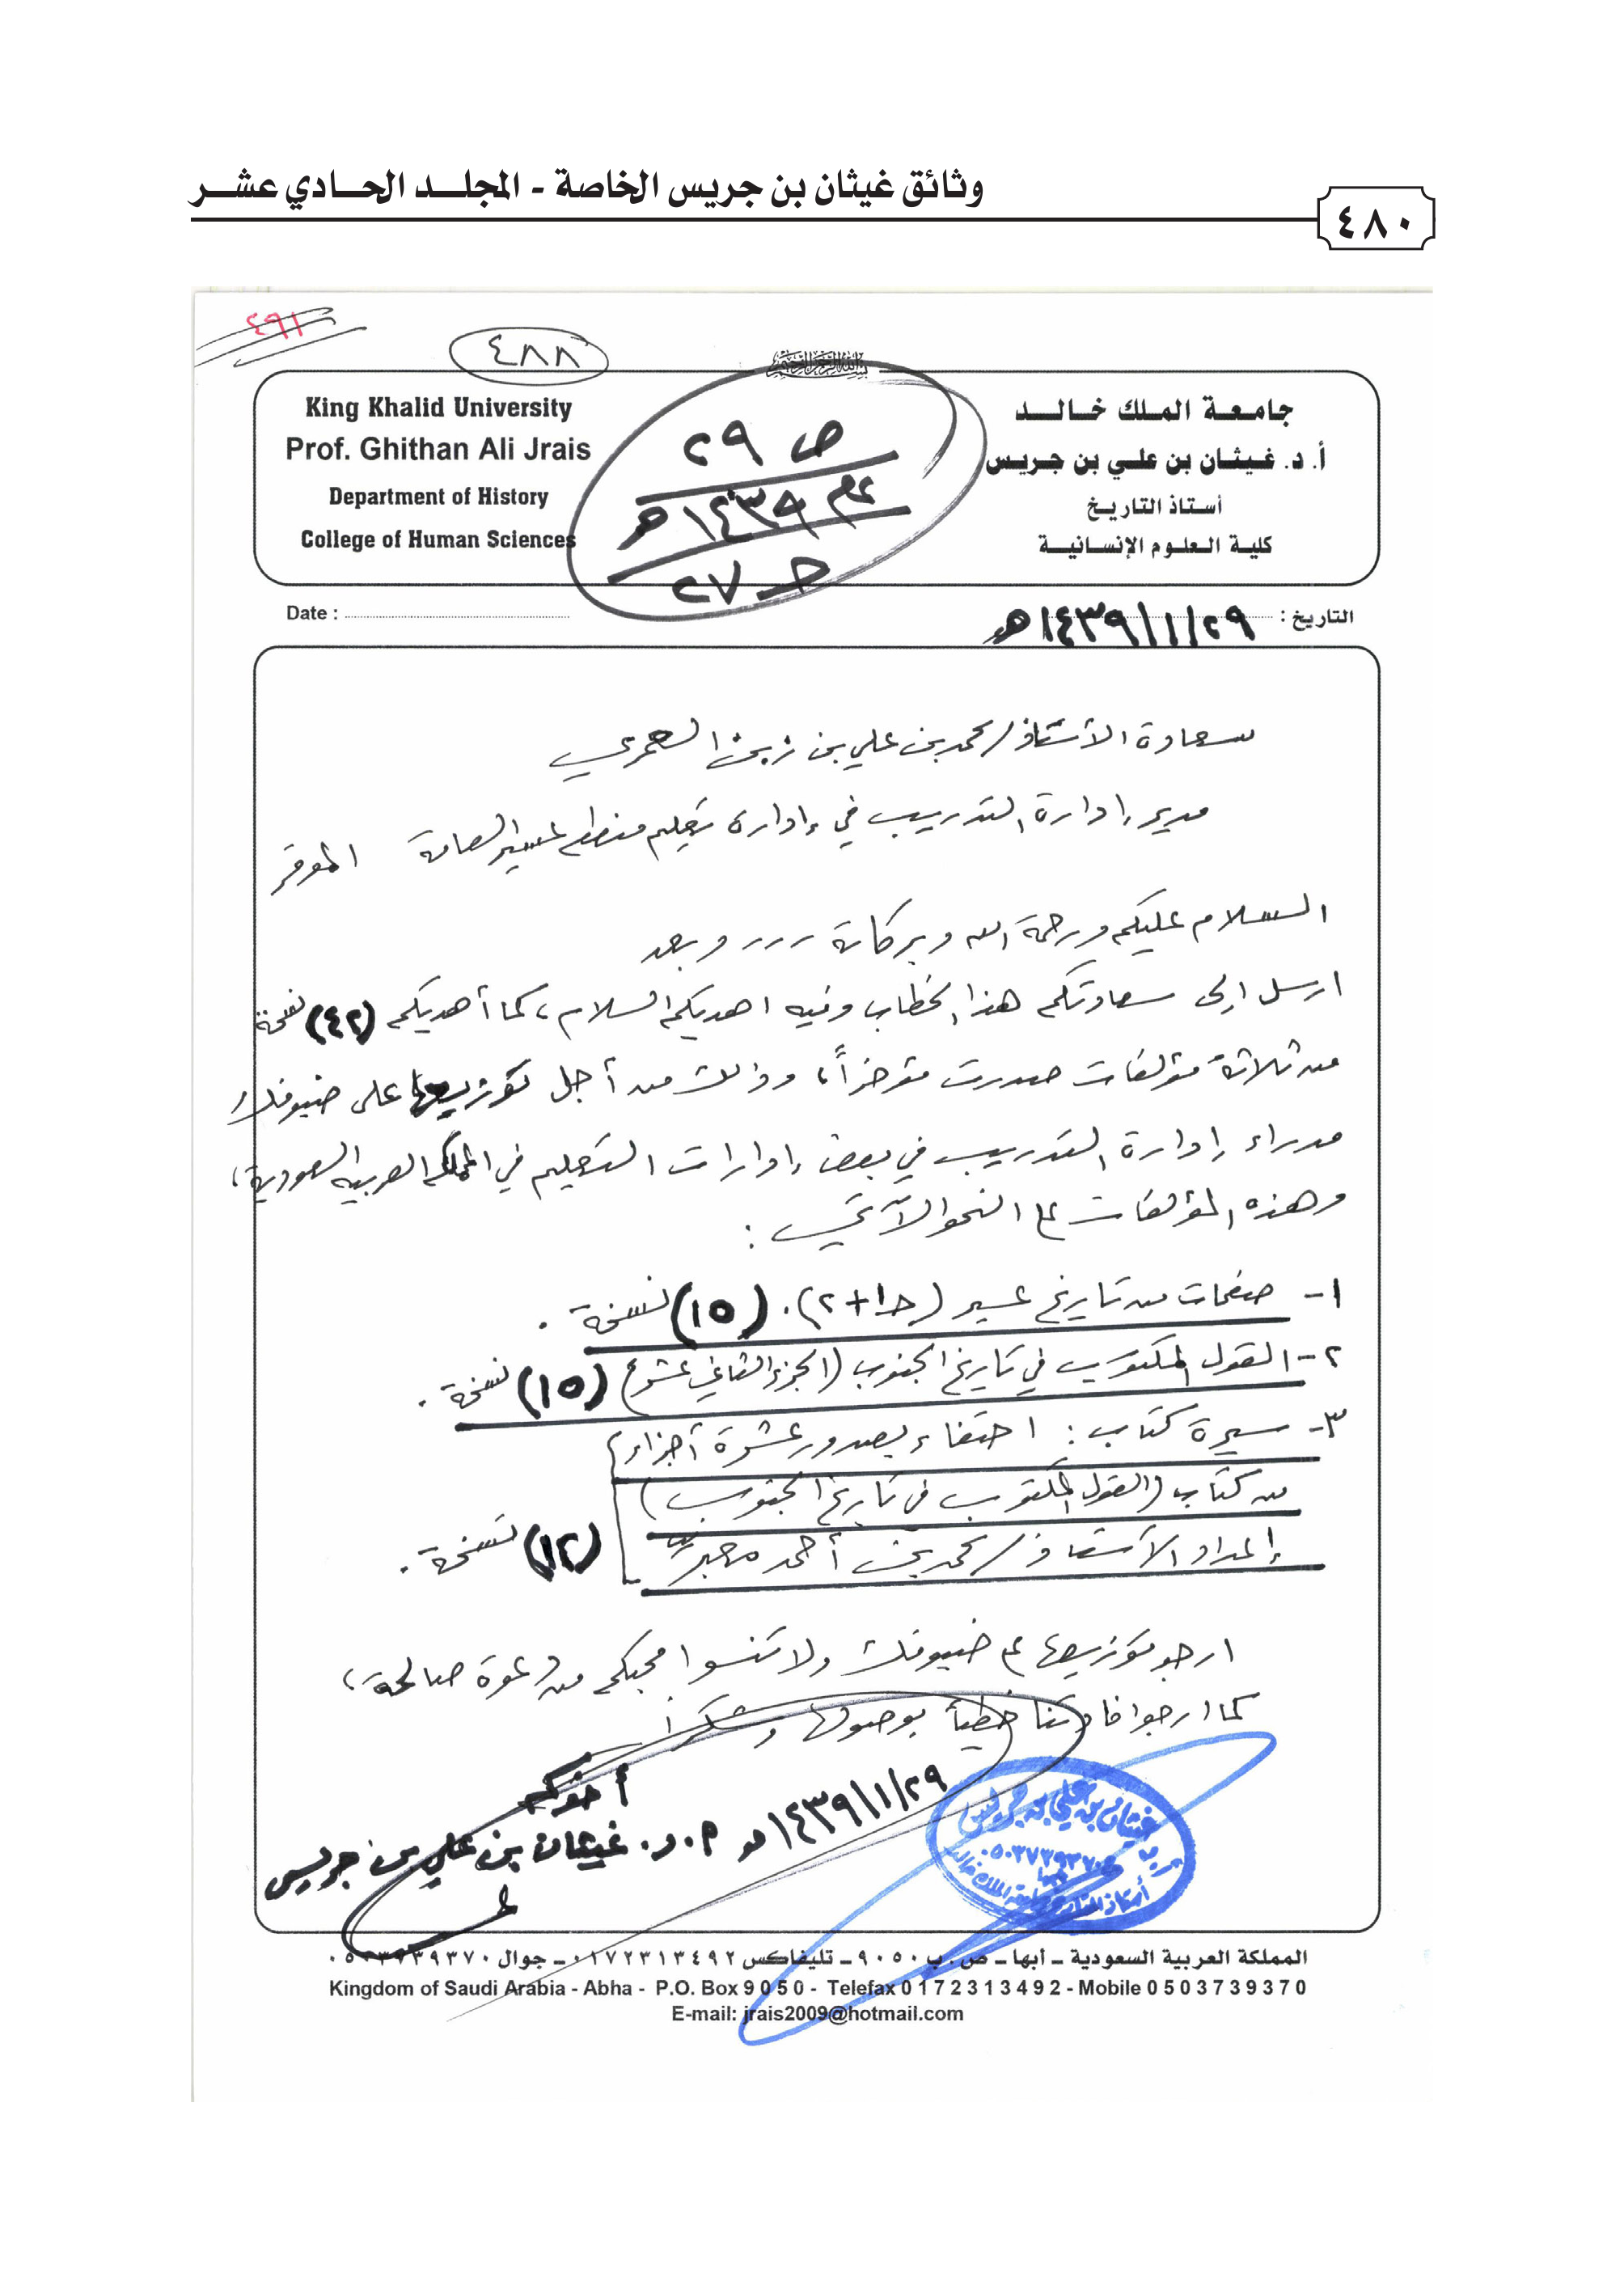 وثائق غيثان بن جريس الخاصة - المجلد الحادي عشر
٤٨٠
٤٩١
٤٨٨
بسم الله الرحمن الرحيم
جامعة الملك خالد
أ. د. غيثان بن علي بن جريس
أستاذ التاريخ
كلية العلوم الإنسانية
King Khalid University
Prof. Ghithan Ali Jrais
Department of History
College of Human Sciences
ص ٢٩
عام ١٤٣٩هـ
جـ ٢٧
التاريخ : ١٤٣٩/١/٢٩هـ
Date :
سعادة الأستاذ / محمد بن علي بن زبن العمري
مدير إدارة التدريب في إدارة تعليم منطقة عسير العامة الموقر
السلام عليكم ورحمة الله وبركاته ... وبعد
ارسل إلى سعادتكم هذا الخطاب وفيه اهديكم السلام، كما أهديكم (٤٢) نسخة
من ثلاثة مؤلفات صدرت مؤخراً، وذلك من أجل توزيعها على ضيوفك
مدراء إدارة التدريب في بعض إدارات التعليم في المملكة العربية السعودية،
وهذه المؤلفات على النحو الآتي :
١- صفحات من تاريخ عسير (جـ١+٢). (١٥) نسخة .
٢- القول المكتوب في تاريخ الجنوب (الجزء الثاني عشر) (١٥) نسخة .
٣- سيرة كتاب : احتفاء بصدور عشرة أجزاء
من كتاب (القول المكتوب في تاريخ الجنوب)
إعداد الأستاذ / محمد بن أحمد معبر (١٢) نسخة .
ارجو توزيعها على ضيوفك ولا تنسوا محبكم من دعوة صالحة،
كما ارجو افادتنا خطياً بوصولها وشكراً
أخوكم
أ. د. غيثان بن علي بن جريس
١٤٣٩/١/٢٩هـ
غيثان بن علي بن جريس
٠٥٠٣٧٣٩٣٧٠
أبها
أستاذ التاريخ بجامعة الملك خالد
المملكة العربية السعودية ــ أبها ــ ص . ب ٩٠٥٠ ــ تليفاكس ٠١٧٢٣١٣٤٩٢ ــ جوال ٠٥٠٣٧٣٩٣٧٠
Kingdom of Saudi Arabia - Abha - P.O. Box 9050 - Telefax 0172313492 - Mobile 0503739370
E-mail: jrais2009@hotmail.com